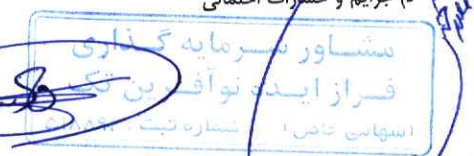 دم جرایم و خسارات احتمالی
مشاور سرمایه گذاری
فراز ایده نوآفرین تک
(سهامی خاص) شماره ثبت: